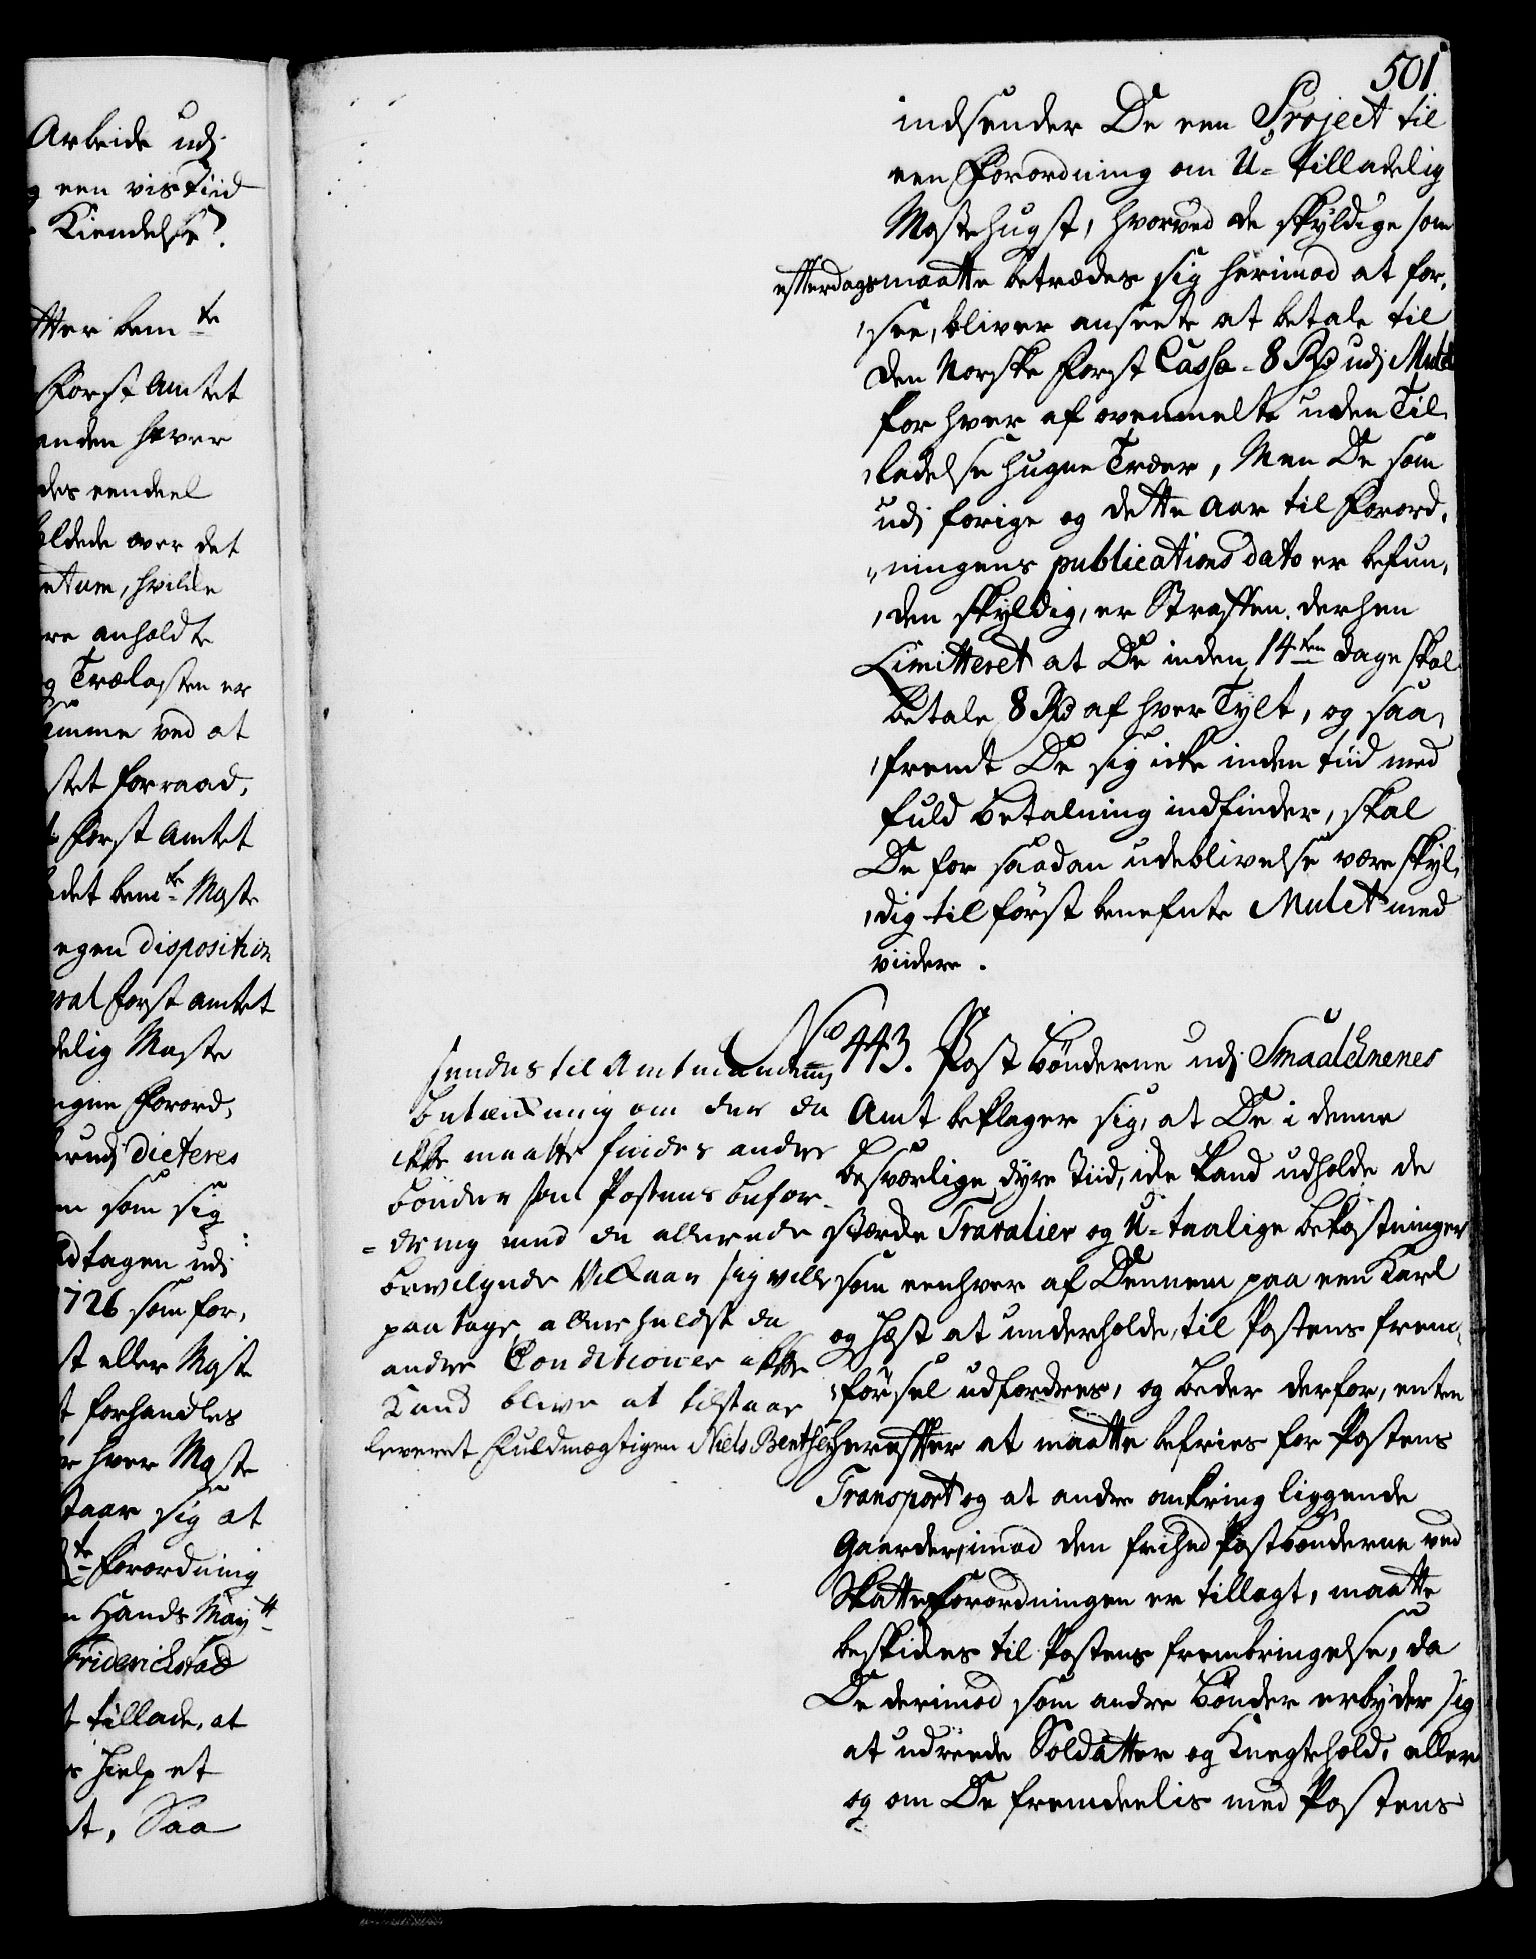 Arbeide udj
een vis Tiid
Kiendelse.
tter bem.te
Forst Amtet
anden hver
des eendeel
oldede over det
etum, hvilde
re anholdte
Trælasten er
amme ved at
stet forraad,
Forst Amtet
det bem.te Maste
egen disposition
ral Forst Amtet
delig Maste
egne Forord,
rudj dicteres
som sig
dtagen udj
1726 som for,
st eller Mast
t forhandles
hver Maste
taar sig at
te Forordning
Hands May.tt
Friderichstad
t tillade, at
hielp et
t, Saa
501
indsender De een Project til
een Forordning om U-tilladelig
Mastehugst, hvorved de skyldige som
effterdags maatte betrædes sig herimod at for,
,see, bliver anseete at betale til
den Norske Forst Cassa - 8 Rd udj Mulct
for hver af ovenmelte uden Til,
,ladelse hugne Træer, Men De som
udj forige og dette Aar til Forord,
,ningens publications dato er befun,
,den skyldig, er Straffen derhen
Limitteret at De inden 14ten dage skal
betale 8 Rd af hver Tylt, og saa,
,fremt De sig icke inden tiid med
fuld betalning indfinder, skal
De for saadan udeblivelse være skyl,
,dig til först benefnte Mulct med
viidere.
No 443. Post bönderne udj Smaalehnenes
Amt beklager sig, at De i denne
besværlige dyre Tiid, icke kand udholde de
stærcke Travalier og U-taalige bekostninger
som eenhver af Dennem paa een Karl
og Hæst at underholde, til Postens frem,
,försel udfordres, og beder derfor, enten
hereffter at maatte befries for Postens
Transport og at andre omkring liggende
Gaarder, imod den frihed Postbönderne ved
Skatte Forordningen er tillagt, maatte
beskides til Postens frembringelse, da
De derimod som andre bönder erbyder sig
at udreede Soldatter og Knegtehold, eller
og om De fremdeelis med Postens
sendes til Amtmandens
betænckning om der da
ikke maatte findes andre
bönder som Postens befor-
-dring med de allerede
bevilgede Vilkaar sig ville
paatage, allerheldst da
andre Conditioner ikke
Kand blive at tilstaae
leveret Fuldmægtigen Niels Benthe